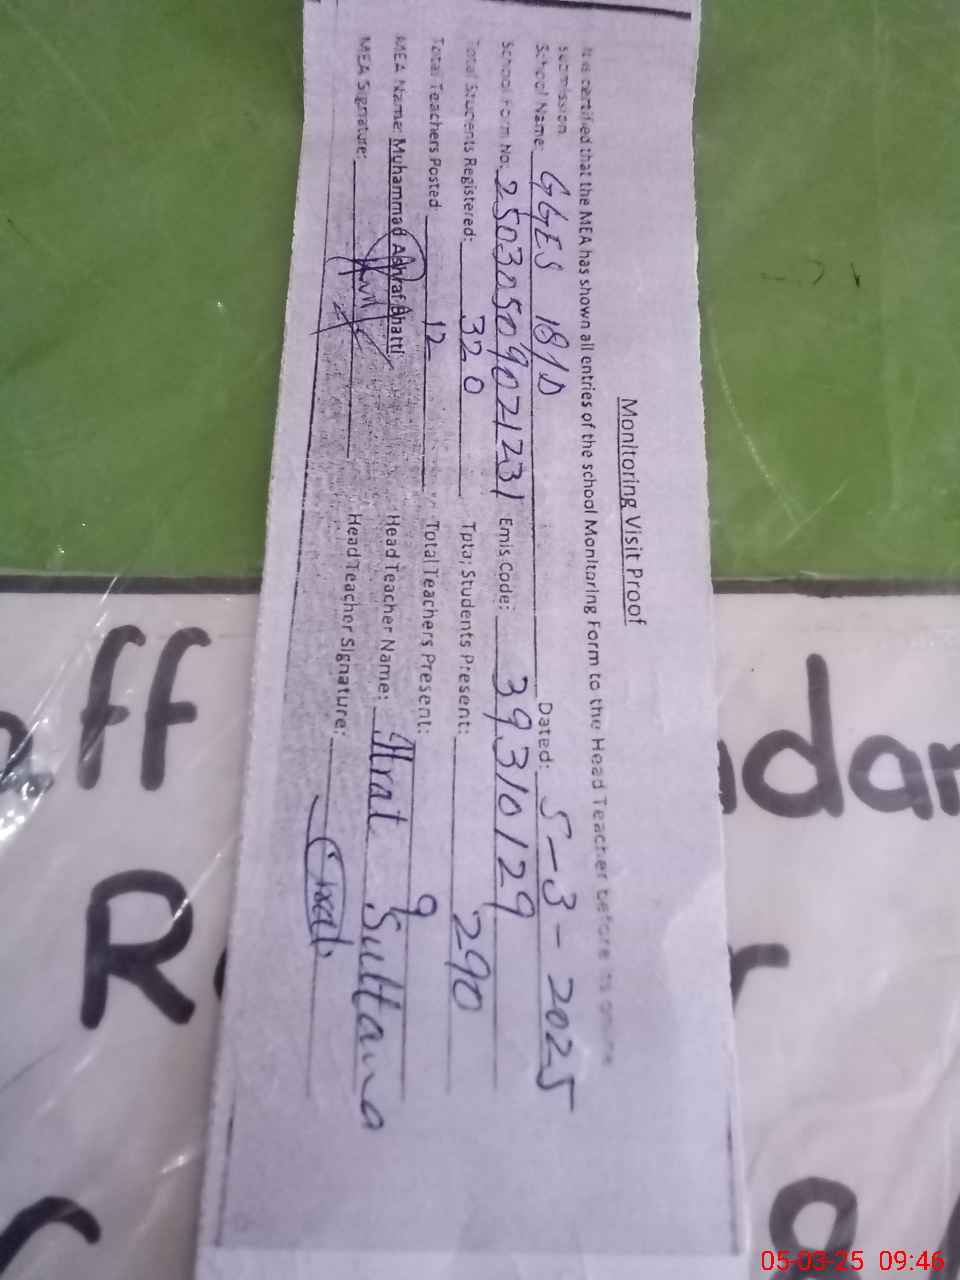 Monitoring Visit Proof
It is certified that the MEA has shown all entries of the school Monitoring Form to the Head Teacher before its online
submission
School Name: GGES 181/D Dated: 5-3-2025
School Form No: 25030509021231 Emis Code: 39310129
Total Students Registered: 320 Tpta; Students Present: 290
Total Teachers Posted: 12 Total Teachers Present: 9
MEA Name: Muhammad Ashraf Bhatti Head Teacher Name: Sultana
MEA Signature: Head Teacher Signature:
05-03-25 09:46